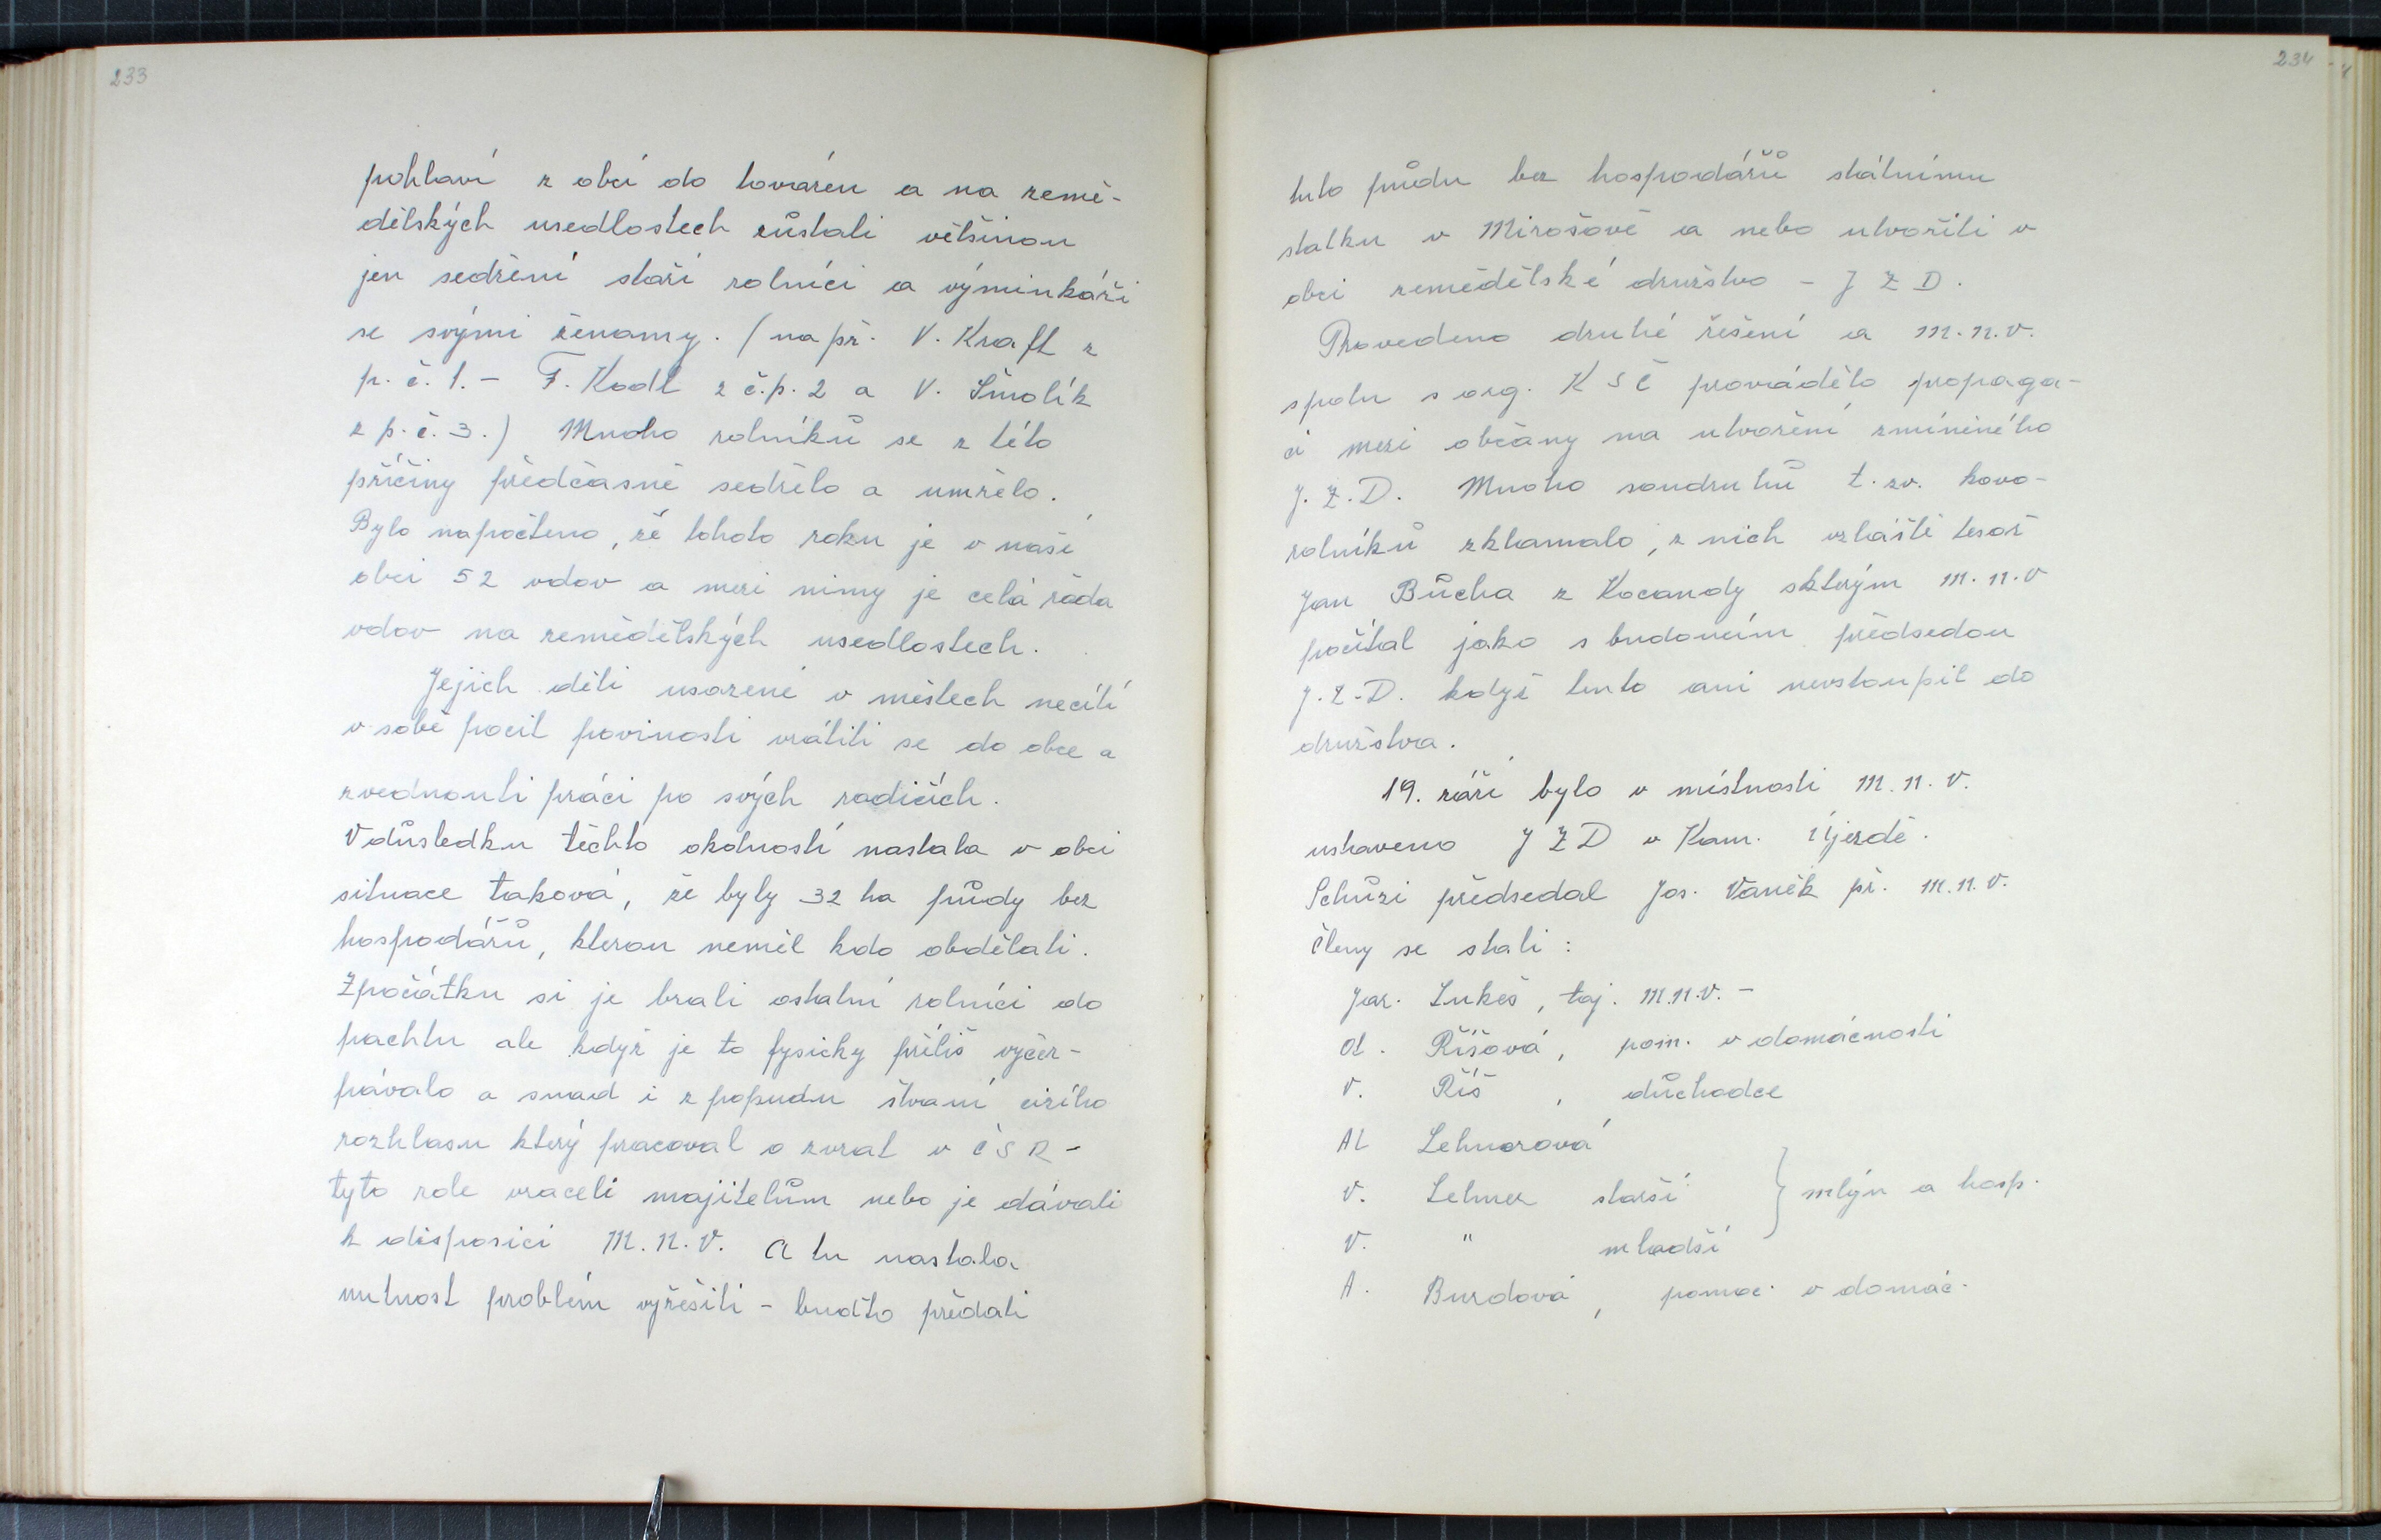 233
pohlaví z obcí do továren a na země-
dělských usedlostech zůstali většinou
jen sedření staří rolníci a výminkáři
se svými ženamy. (na př. V. Kraft z
p. č. 1. - F. Kodl z č.p. 2 a V. Šmolík
z p. č. 3.) Mnoho rolníků se z této
příčiny předčasně sedřelo a umřelo.
Bylo napočteno, že tohoto roku je v naší
obci 52 vdov a mezi nimy je celá řada
vdov na zemědělských usedlostech.
Jejich děti usazené v městech necítí
v sobě pocit povinosti vrátiti se do obce a
zvednouti práci po svých rodičích.
V důsledku těchto okolností nastala v obci
situace taková, že byly 32 ha půdy bez
hospodářů, kterou neměl kdo obdělati.
Zpočátku si je brali ostatní rolníci do
pachtu ale když je to fysicky příliš vyčer-
pávalo a snad i z popudu štvaní cizího
rozhlasu který pracoval o zvrat v ČSR -
tyto role vraceli majitelům nebo je dávali
k disposici M.N.V. A tu nastala
nutnost problém vyřešiti - buďto předati
234
tuto půdu bez hospodářů státnímu
statku v Mirošově a nebo utvořiti v
obci zemědělské družstvo - J Z D.
Provedeno druhé řešení a M.N.V.
spolu s org. KSČ provádělo propaga-
ci mezi občany na utvoření zmíněného
J.Z.D. Mnoho soudruhů t. zv. kovo-
rolníků zklamalo, z nich vzláště tesař
Jan Bůcha z Kocandy skterým M.N.V
počítal jako s budoucím předsedou
J.Z.D. když tento ani nevstoupil do
družstva.
19. září bylo v místnosti M.N.V.
ustaveno J Z D v Kam. Újezdě.
Schůzi předsedal Jos. Vaněk př. M.N.V.
Členy se stali :
Jar. Lukeš, taj. M.N.V. -
Ol. Říšová, pom. v domácnosti
V. Říš , důchodce
Al Lehnerová
V. Lehner starší } mlýn a hosp.
V. " mladší
A. Burdová, pomoc. v domác.